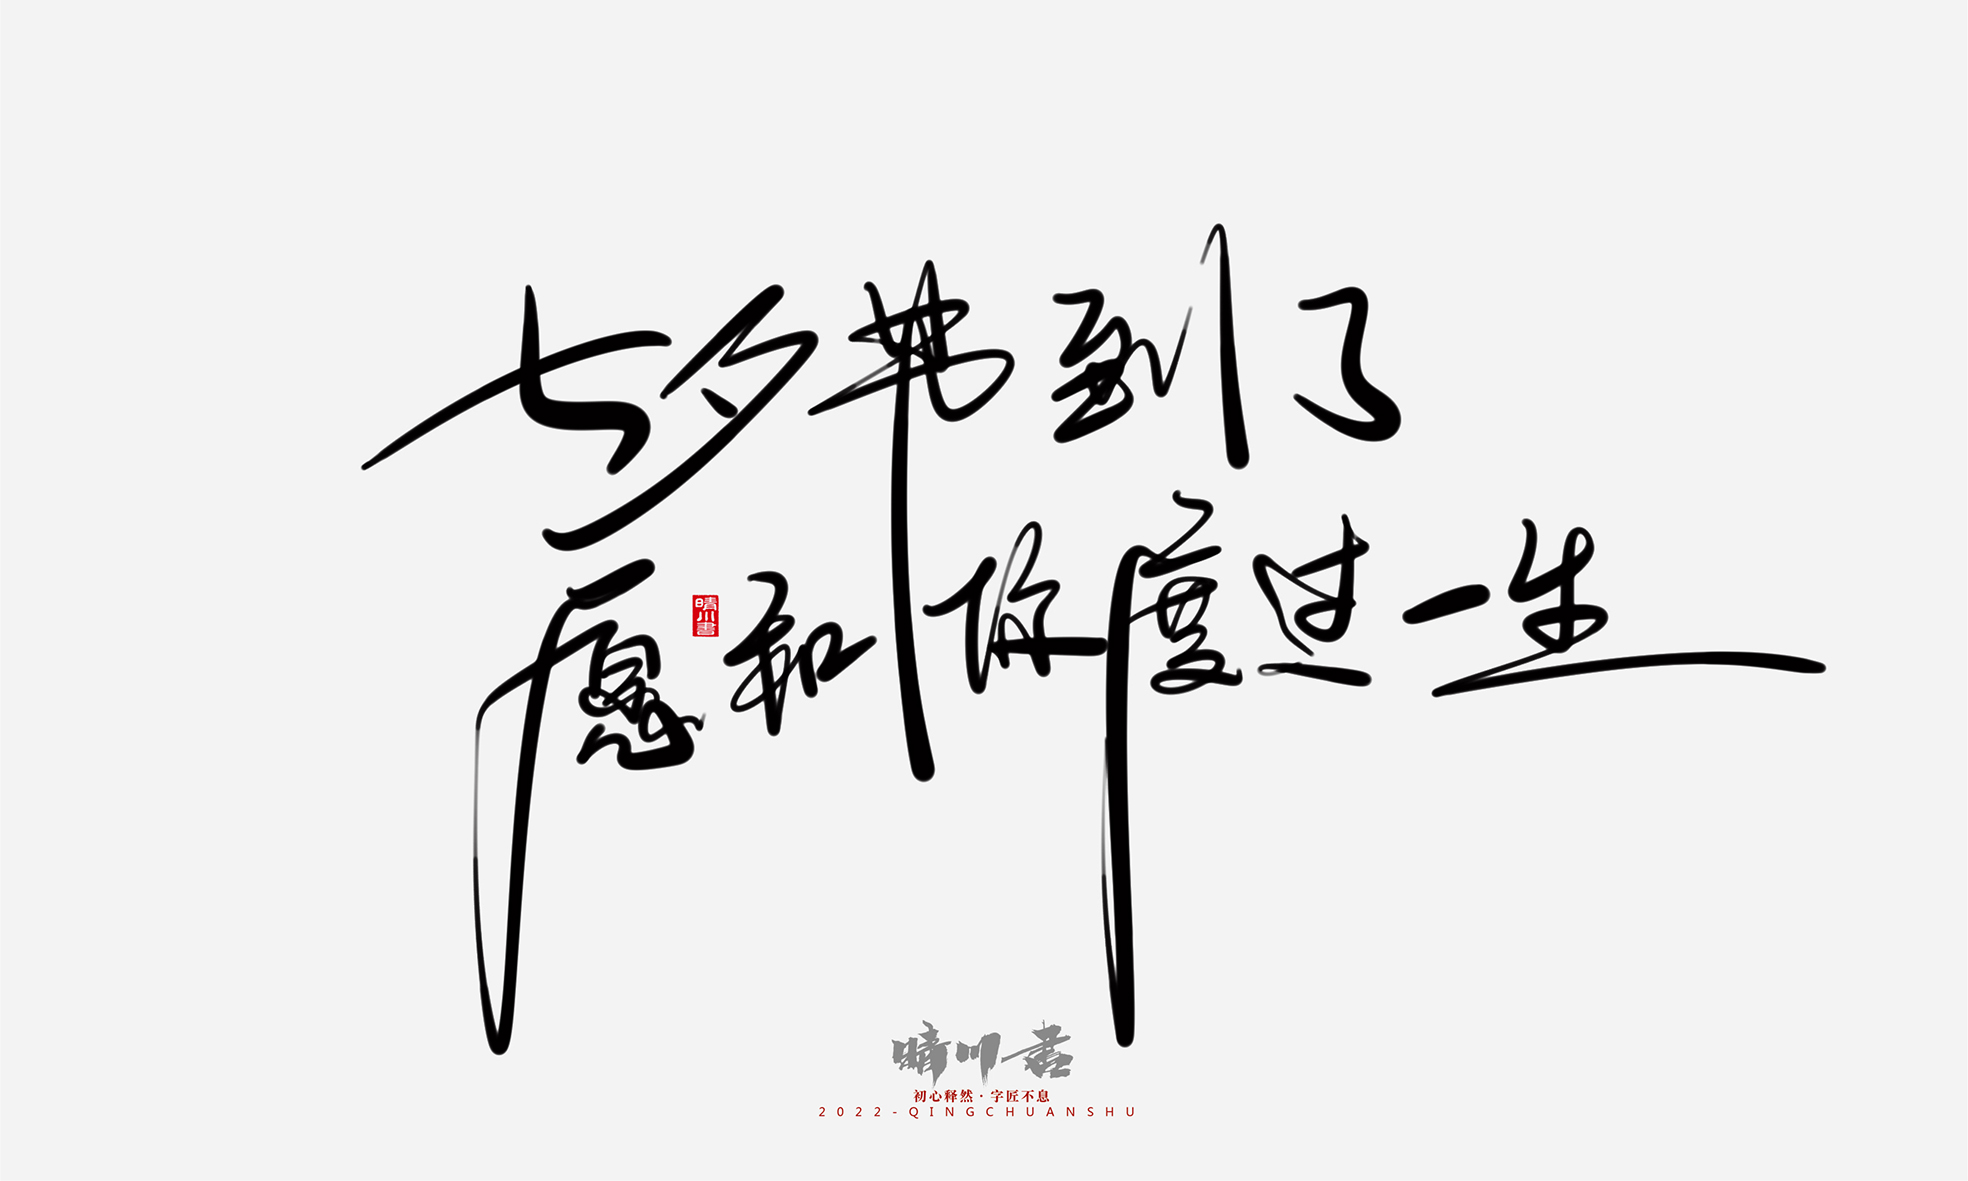 七夕节到了
愿和你度过一生
晴川书
晴川书
初心释然·字匠不息
2022-QINGCHUANSHU